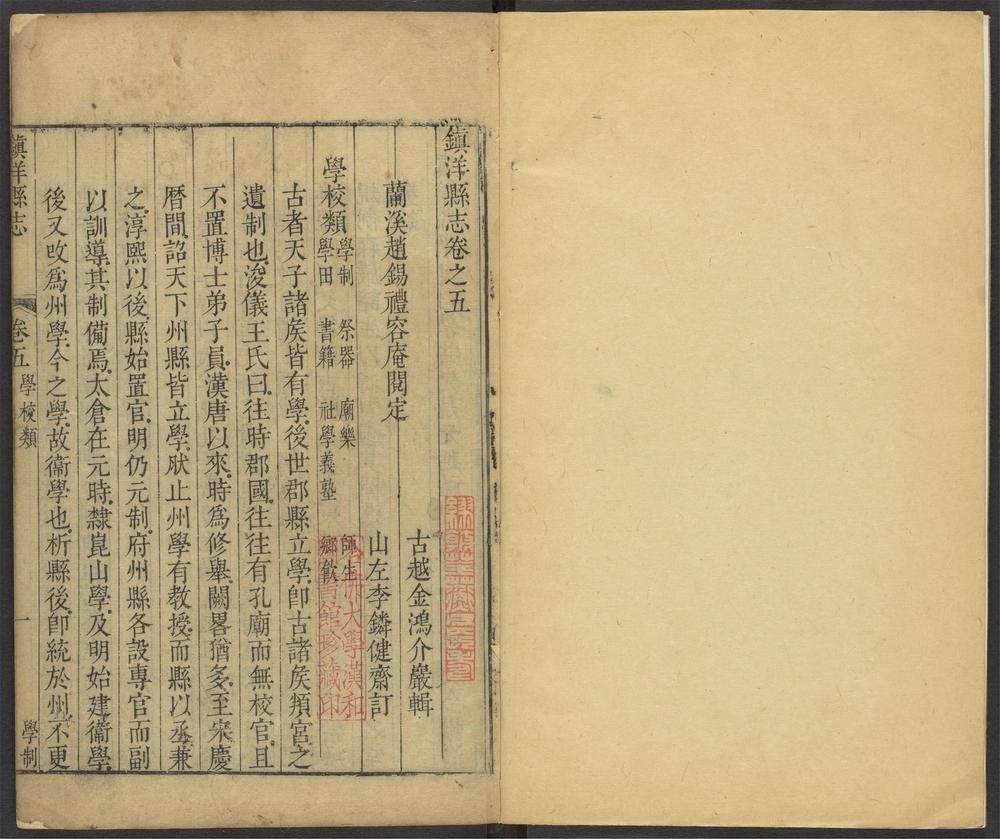 鎮洋縣志卷之五
古越金鴻介巖輯
蘭溪趙錫禮容庵閱定
山左李鏻健齋訂
學校類 學制 祭器 廟樂 師生
學田 書籍 社學義塾 鄉飲
古者天子諸矦皆有學後世郡縣立學卽古諸矦頖宮之
遺制也浚儀王氏曰往時郡國往往有孔廟而無校官且
不置博士弟子員漢唐以來時爲修舉闕畧猶多至宋慶
曆間詔天下州縣皆立學肰止州學有教授而縣以丞兼
之淳熙以後縣始置官明仍元制府州縣各設專官而副
以訓導其制備焉太倉在元時隸崑山學及明始建衞學
後又攺爲州學今之學故衞學也析縣後卽統於州不更
鎮洋縣志 卷五 學校類 一 學制
大學漢和
圖書館珍藏印